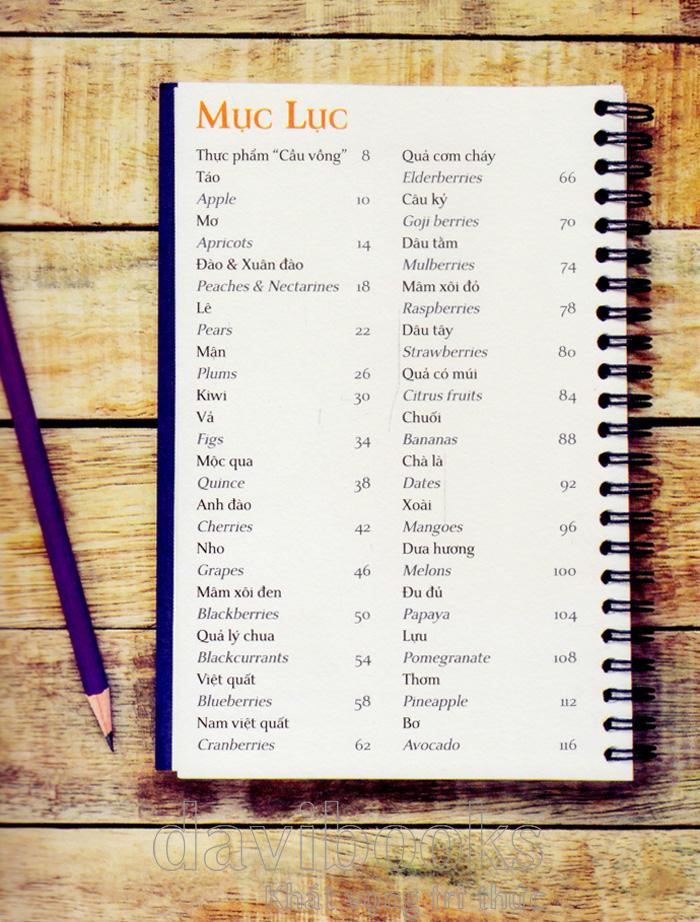 Mục Lục
Thực phẩm “Cầu vồng” 8
Táo
Apple 10
Mơ
Apricots 14
Đào & Xuân đào
Peaches & Nectarines 18
Lê
Pears 22
Mận
Plums 26
Kiwi 30
Vả
Figs 34
Mộc qua
Quince 38
Anh đào
Cherries 42
Nho
Grapes 46
Mâm xôi đen
Blackberries 50
Quả lý chua
Blackcurrants 54
Việt quất
Blueberries 58
Nam việt quất
Cranberries 62
Quả cơm cháy
Elderberries 66
Câu kỷ
Goji berries 70
Dâu tằm
Mulberries 74
Mâm xôi đỏ
Raspberries 78
Dâu tây
Strawberries 80
Quả có múi
Citrus fruits 84
Chuối
Bananas 88
Chà là
Dates 92
Xoài
Mangoes 96
Dưa hương
Melons 100
Đu đủ
Papaya 104
Lựu
Pomegranate 108
Thơm
Pineapple 112
Bơ
Avocado 116
davibooks
Khát vọng tri thức